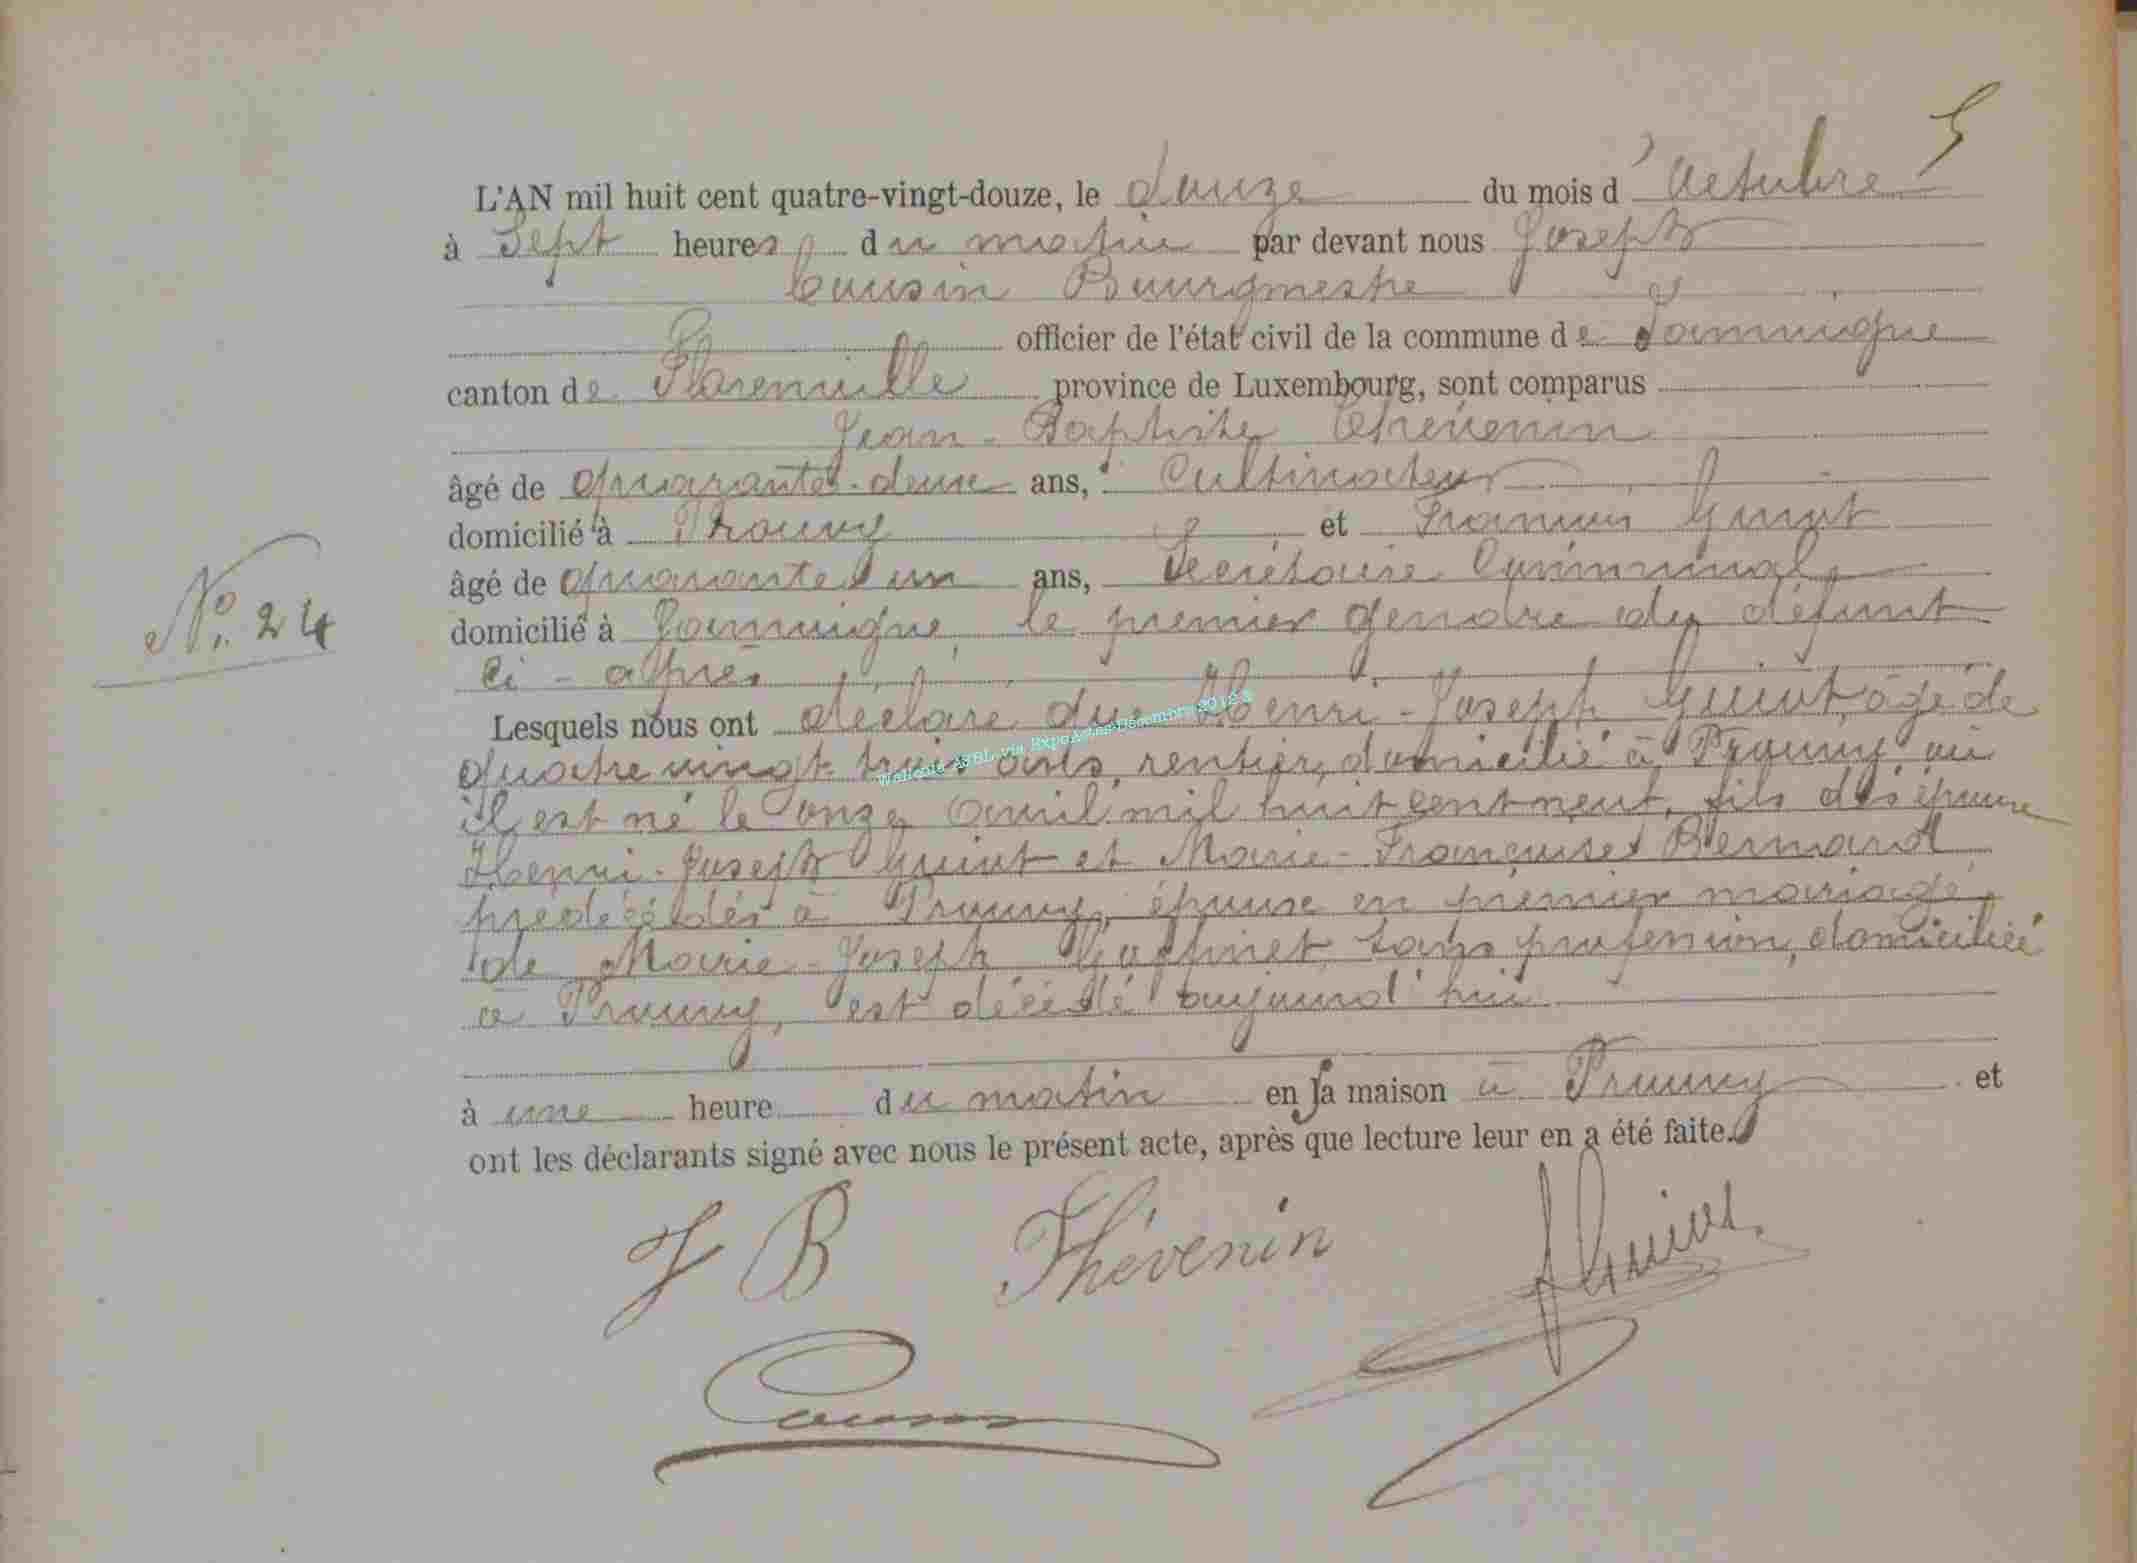 5
L'AN mil huit cent quatre-vingt-douze, le douze du mois d'Octobre
à Sept heures du matin par devant nous Joseph
Cousin Bourgmestre
officier de l'état civil de la commune de Jamoigne
canton de Florenville province de Luxembourg, sont comparus
Jean-Baptiste Thévenin
âgé de quarante-deux ans, Cultivateur
domicilié à Prouvy et François Guiot
âgé de quarante un ans, Secrétaire Communal
domicilié à Jamoigne, le premier gendre du défunt
ci-après
N° 24
Lesquels nous ont déclaré que Henri-Joseph Guiot âgé de
quatre vingt trois ans, rentier, domicilié à Prouvy, où
il est né le onze avril mil huit cent neuf, fils des époux
Henri-Joseph Guiot et Marie-Françoise Bernard
prédécédés à Prouvy, époux en premier mariage
de Marie-Joseph Goffinet sans profession, domiciliée
à Prouvy, est décédé aujourd'hui
à une heure du matin en sa maison à Prouvy et
ont les déclarants signé avec nous le présent acte, après que lecture leur en a été faite.
J B Thévenin
Guiot
Cousin
Wallonie ASBL, via ExpoActes Décembre 2012